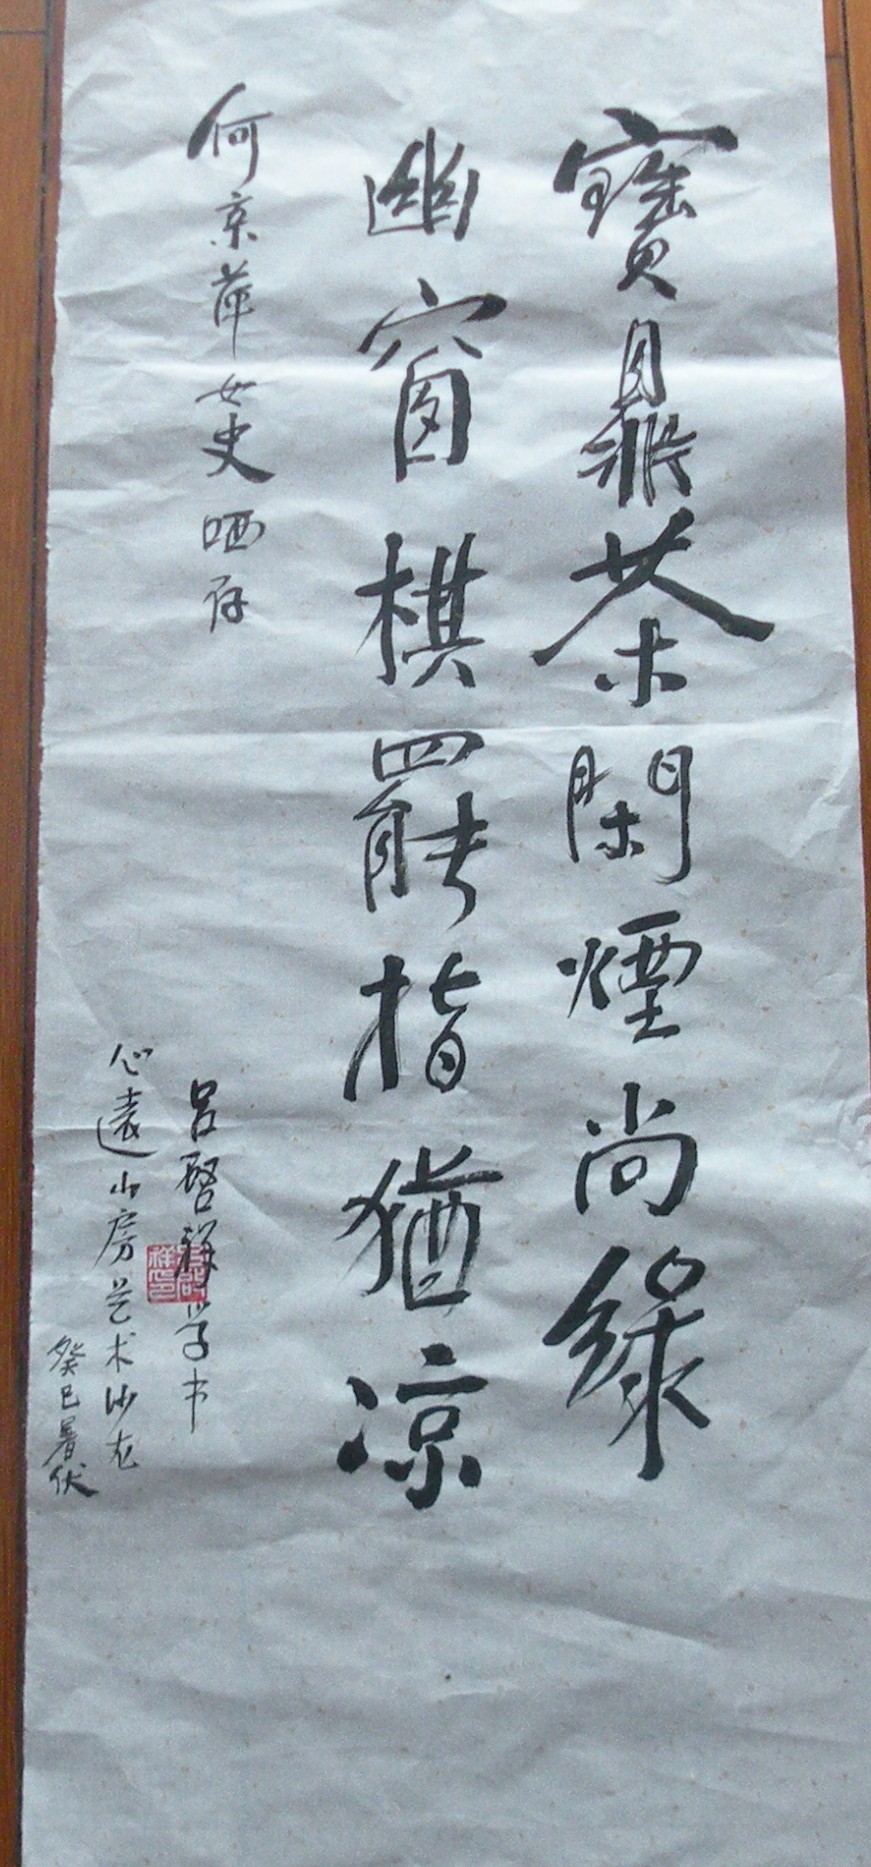 寶鼎茶閑煙尚綠
幽窗棋罷指猶凉
何京萍女史哂存
呂啓祥学书
心遠山房艺术沙龙
癸巳暑伏